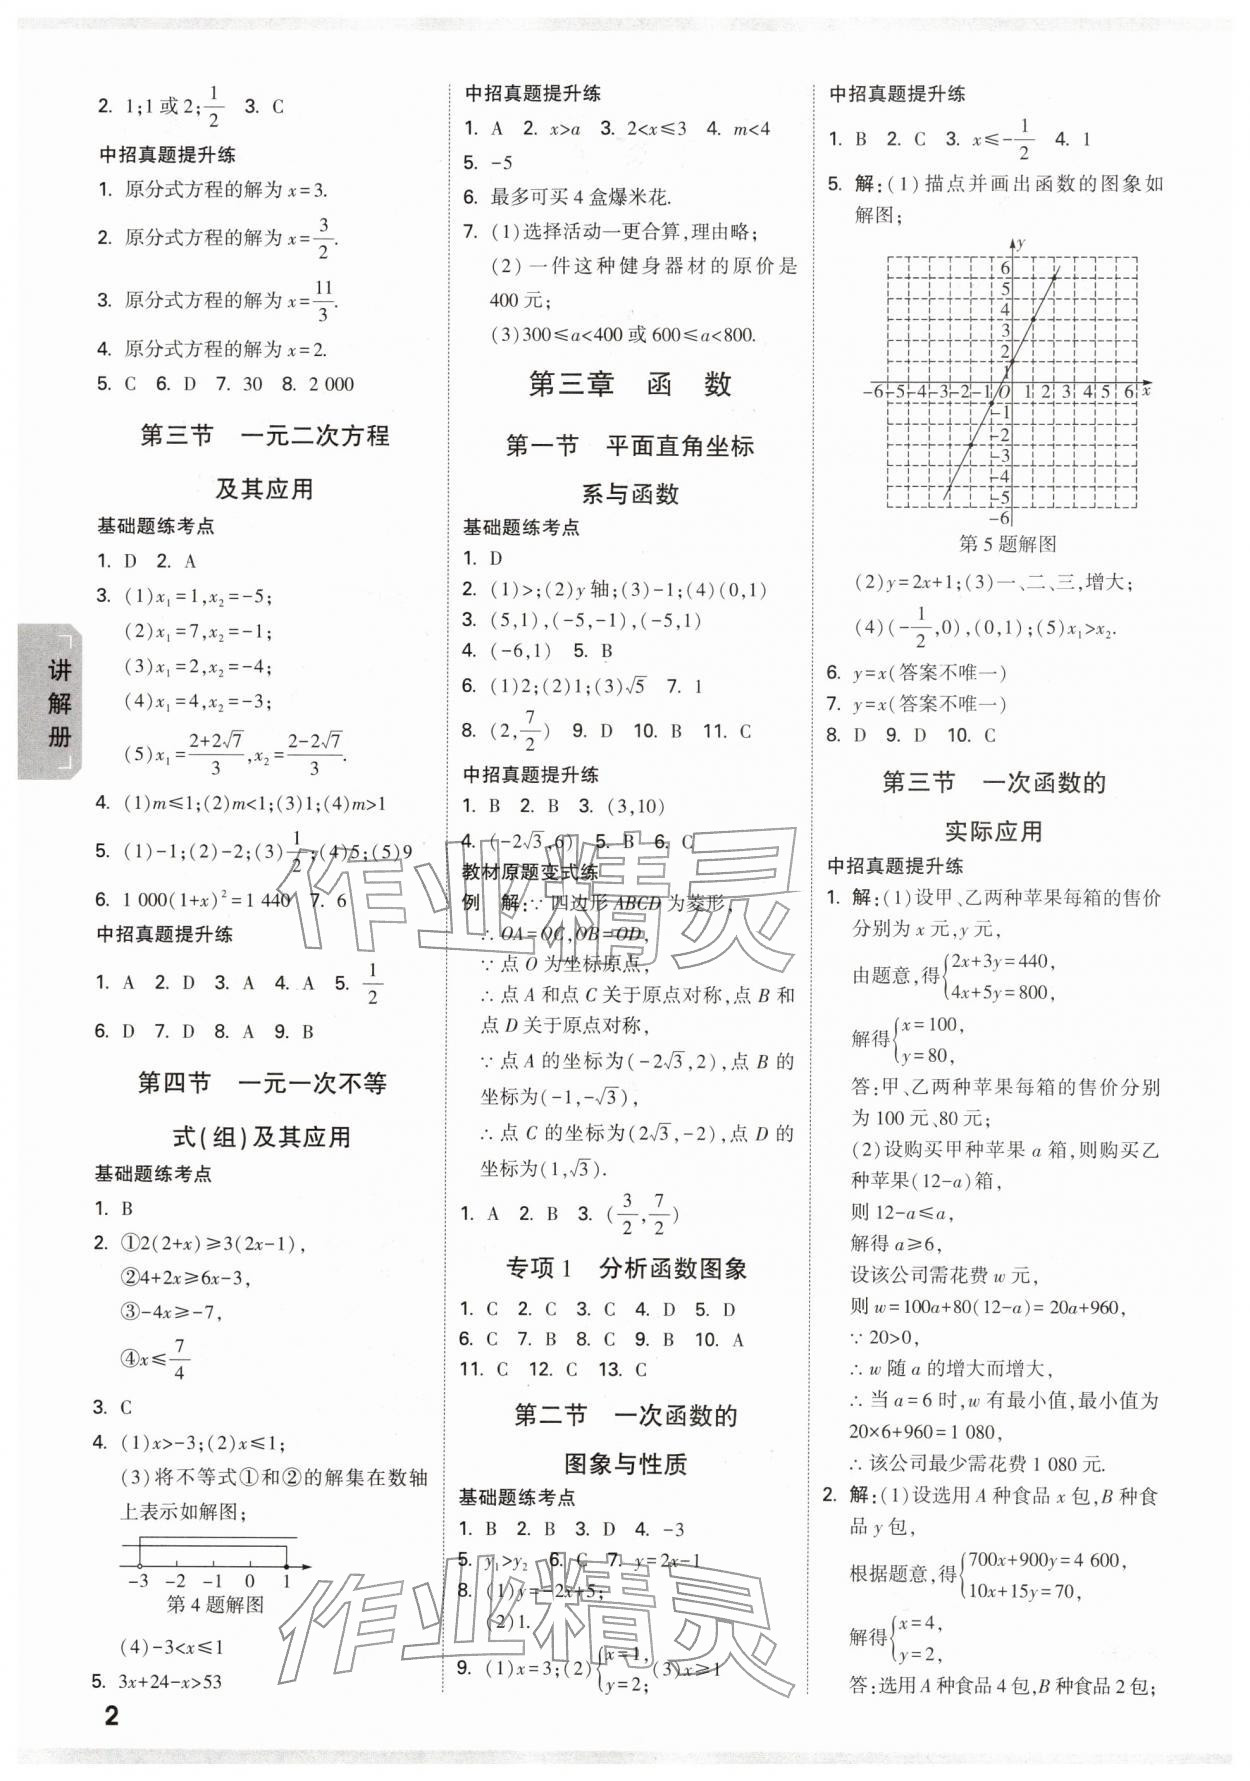 2. 1;1或2;1/2 3. C
中招真题提升练
1. 原分式方程的解为x=3.
2. 原分式方程的解为x=3/2.
3. 原分式方程的解为x=11/3.
4. 原分式方程的解为x=2.
5. C 6. D 7. 30 8. 2 000
第三节 一元二次方程
及其应用
基础题练考点
1. D 2. A
3. (1)x₁=1,x₂=-5;
(2)x₁=7,x₂=-1;
(3)x₁=2,x₂=-4;
(4)x₁=4,x₂=-3;
(5)x₁=(2+2√7)/3,x₂=(2-2√7)/3.
4. (1)m≤1;(2)m<1;(3)1;(4)m>1
5. (1)-1;(2)-2;(3)1/2;(4)5;(5)9
6. 1 000(1+x)²=1 440 7. 6
中招真题提升练
1. A 2. D 3. A 4. A 5. 1/2
6. D 7. D 8. A 9. B
第四节 一元一次不等
式(组)及其应用
基础题练考点
1. B
2. ①2(2+x)≥3(2x-1),
②4+2x≥6x-3,
③-4x≥-7,
④x≤7/4
3. C
4. (1)x>-3;(2)x≤1;
(3)将不等式①和②的解集在数轴
上表示如解图;
-3 -2 -1 0 1
第4题解图
(4)-3<x≤1
5. 3x+24-x>53
2
讲解册
中招真题提升练
1. A 2. x>a 3. 2<x≤3 4. m<4
5. -5
6. 最多可买4盒爆米花.
7. (1)选择活动一更合算,理由略;
(2)一件这种健身器材的原价是
400元;
(3)300≤a<400或600≤a<800.
第三章 函 数
第一节 平面直角坐标
系与函数
基础题练考点
1. D
2. (1)>;(2)y轴;(3)-1;(4)(0,1)
3. (5,1),(-5,-1),(-5,1)
4. (-6,1) 5. B
6. (1)2;(2)1;(3)√5 7. 1
8. (2,7/2) 9. D 10. B 11. C
中招真题提升练
1. B 2. B 3. (3,10)
4. (-2√3,6) 5. B 6. C
教材原题变式练
例 解:∵四边形ABCD为菱形,
∴OA=OC,OB=OD,
∵点O为坐标原点,
∴点A和点C关于原点对称,点B和
点D关于原点对称,
∵点A的坐标为(-2√3,2),点B的
坐标为(-1,-√3),
∴点C的坐标为(2√3,-2),点D的
坐标为(1,√3).
1. A 2. B 3. (3/2,7/2)
专项1 分析函数图象
1. C 2. C 3. C 4. D 5. D
6. C 7. B 8. C 9. B 10. A
11. C 12. C 13. C
第二节 一次函数的
图象与性质
基础题练考点
1. B 2. B 3. D 4. -3
5. y₁>y₂ 6. C 7. y=2x-1
8. (1)y=-2x+5;
(2)1.
9. (1)x=3;(2){x=1,
y=2;(3)x≥1
中招真题提升练
1. B 2. C 3. x≤-1/2 4. 1
5. 解:(1)描点并画出函数的图象如
解图;
y
6
5
4
3
2
1
-6-5-4-3-2-1 O 1 2 3 4 5 6 x
-1
-2
-3
-4
-5
-6
第5题解图
(2)y=2x+1;(3)一、二、三,增大;
(4)(-1/2,0),(0,1);(5)x₁>x₂.
6. y=x(答案不唯一)
7. y=x(答案不唯一)
8. D 9. D 10. C
第三节 一次函数的
实际应用
中招真题提升练
1. 解:(1)设甲、乙两种苹果每箱的售价
分别为x元,y元,
由题意,得{2x+3y=440,
4x+5y=800,
解得{x=100,
y=80,
答:甲、乙两种苹果每箱的售价分别
为100元、80元;
(2)设购买甲种苹果a箱,则购买乙
种苹果(12-a)箱,
则12-a≤a,
解得a≥6,
设该公司需花费w元,
则w=100a+80(12-a)=20a+960,
∵20>0,
∴w随a的增大而增大,
∴当a=6时,w有最小值,最小值为
20×6+960=1 080,
∴该公司最少需花费1 080元.
2. 解:(1)设选用A种食品x包,B种食
品y包,
根据题意,得{700x+900y=4 600,
10x+15y=70,
解得{x=4,
y=2,
答:选用A种食品4包,B种食品2包;
作业精灵
作业精灵